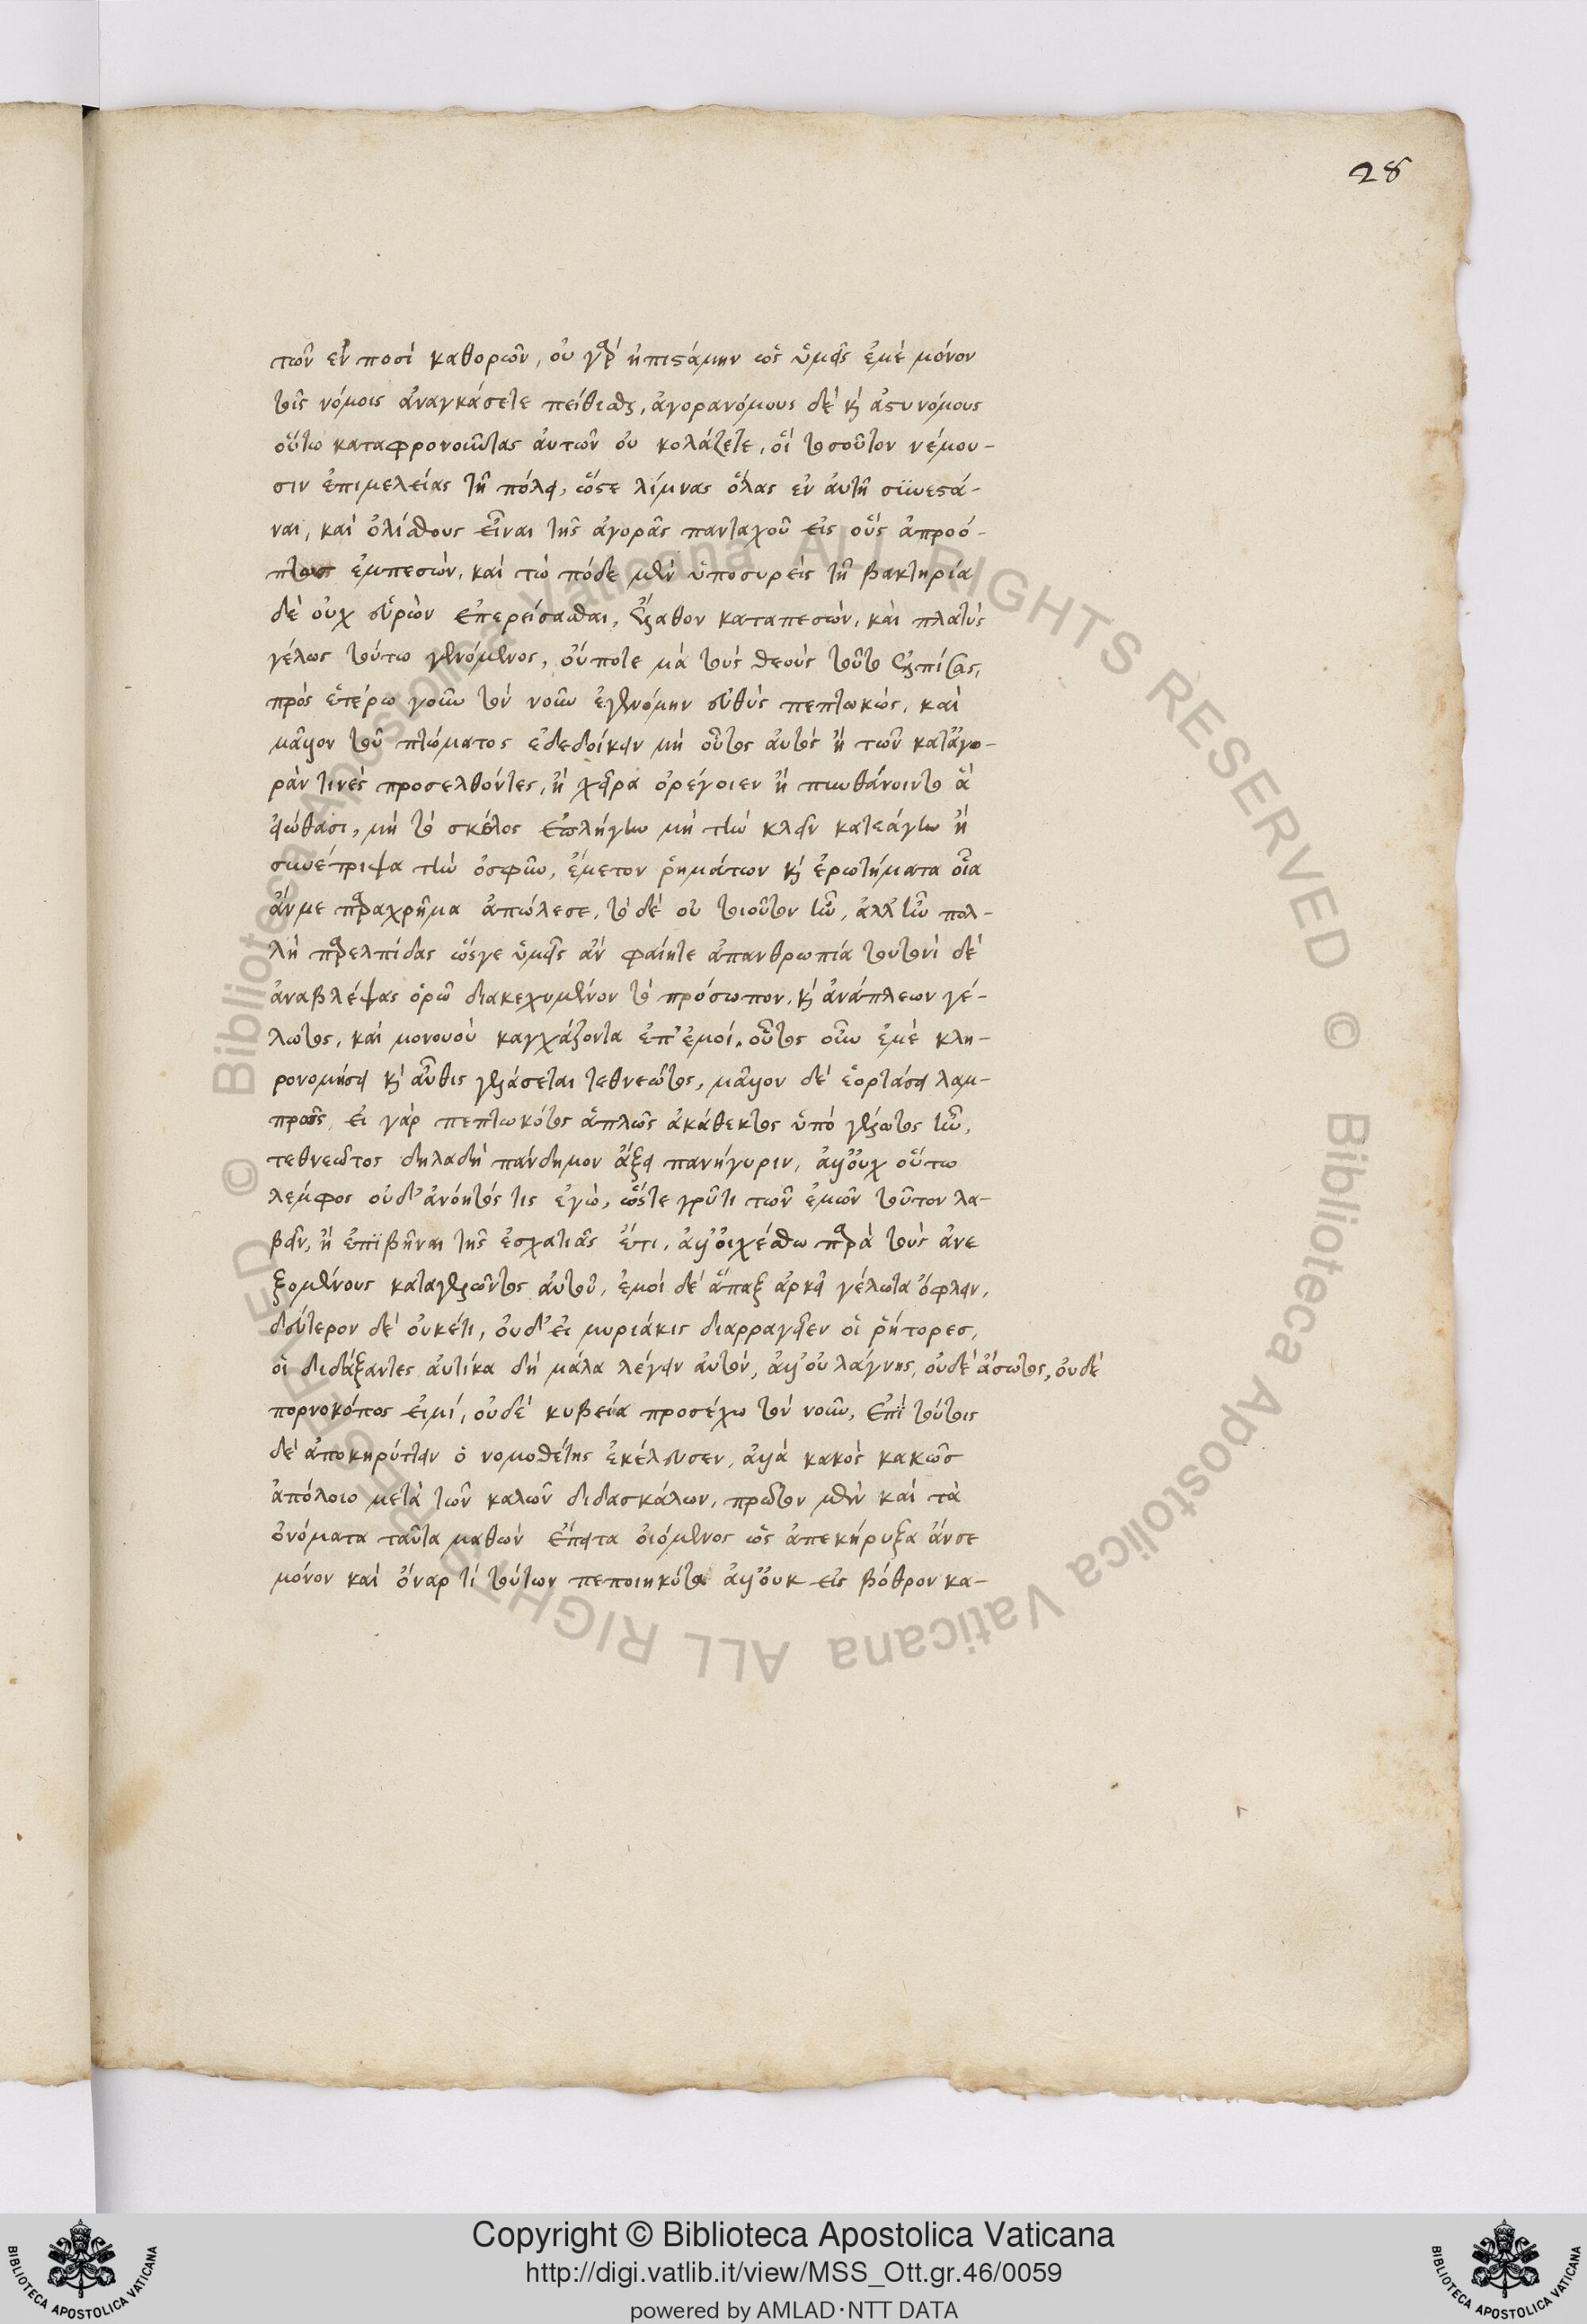 28
των ἐν ποσὶ καθορῶν, οὐ γὰρ ἠπιστάμην ὡς ὑμεῖς ἐμὲ μόνον
τοῖς νόμοις ἀναγκάσετε πείθεσθαι, ἀγορανόμους δὲ καὶ ἀστυνόμους
οὕτω καταφρονοῦντας αὐτῶν οὐ κολάζετε, οἳ τοσοῦτον νέμου-
σιν ἐπιμελείας τῇ πόλει, ὥστε λίμνας ὅλας ἐν αὐτῇ συνεστά-
ναι, καὶ ὀλίσθους εἶναι τῆς ἀγορᾶς πανταχοῦ εἰς οὓς ἀπροό-
πτως ἐμπεσὼν, καὶ τὼ πόδε μὲν ὑποσυρεὶς τῇ βακτηρίᾳ
δὲ οὐχ εὑρὼν ἐπερείσασθαι, ἔλαθον καταπεσὼν, καὶ πλατὺς
γέλως τούτω γενόμενος, οὔποτε μὰ τοὺς θεοὺς τοῦτο ἐλπίσας,
πρὸς ἑτέρω γοῦν τὸν νοῦν ἐγενόμην εὐθὺς πεπτωκὼς, καὶ
μᾶλλον τοῦ πτώματος ἐδεδοίκειν μὴ οὗτος αὐτὸς ἢ τῶν κατἀγο-
ράν τινὲς προσελθόντες, ἢ χεῖρα ὀρέγοιεν ἢ πυνθάνοιντο ἃ
εἰώθασι, μὴ τὸ σκέλος ἐπλήγην μὴ τὴν κλεῖν κατεάγην ἢ
συνέτριψα τὴν ὀσφῦν, ἔμετον ῥημάτων καὶ ἐρωτήματα οἷα
ἄν με παραχρῆμα ἀπώλεσε, τὸ δὲ οὐ τοιοῦτον ἦν, ἀλλ' ἦν πολ-
λὴ παρελπίδας ὥσγε ὑμεῖς ἂν φαίητε ἀπανθρωπία τουτονὶ δὲ
ἀναβλέψας ὁρῶ διακεχυμένον τὸ πρόσωπον, καὶ ἀνάπλεων γέ-
λωτος, καὶ μονουοὺ καγχάζοντα ἐπ' ἐμοί. οὗτος οὖν ἐμὲ κλη-
ρονομήσει καὶ αὖθις γελάσεται τεθνεῶτος, μᾶλλον δὲ ἑορτάσει λαμ-
πρῶς, εἰ γὰρ πεπτωκότος ἁπλῶς ἀκάθεκτος ὑπὸ γέλωτος ἦν,
τεθνεῶτος δηλαδὴ πάνδημον ἄξει πανήγυριν, ἀλλ' οὐχ οὕτω
λέμφος οὐδ' ἀνόητός τις ἐγὼ, ὥστε γρῦτι τῶν ἐμῶν τοῦτον λα-
βεῖν, ἢ ἐπϊβῆναι τῆς ἐσχατιᾶς ἔτι, ἀλλ' οἰχέσθω παρὰ τοὺς ἀνε
ξομένους καταγελῶντος αὐτοῦ, ἐμοὶ δὲ ἅπαξ ἀρκεῖ γέλωτα ὄφλειν,
δεύτερον δὲ οὐκέτι, οὐδ' εἰ μυριάκις διαρραγεῖεν οἱ ῥήτορες,
οἱ διδάξαντες αὐτίκα δὴ μάλα λέγειν αὐτὸν, ἀλλ' οὐ λάγνης, οὐδὲ ἄσωτος, οὐδὲ
πορνοκόπος εἰμί, οὐδὲ κυβεία προσέχω τὸν νοῦν, ἐπῒ τούτοις
δὲ ἀποκηρύττειν ὁ νομοθέτης ἐκέλευσεν, ἀλλὰ κακὸς κακῶς
ἀπόλοιο μετὰ τῶν καλῶν διδασκάλων, πρῶτον μὲν καὶ τὰ
ὀνόματα ταῦτα μαθὼν ἔπειτα οἰόμενος ὡς ἀπεκήρυξα ἄνσε
μόνον καὶ ὄναρ τὶ τούτων πεποιηκότα ἀλλ' οὐκ εἰς βόθρον κα-
Copyright © Biblioteca Apostolica Vaticana
http://digi.vatlib.it/view/MSS_Ott.gr.46/0059
powered by AMLAD·NTT DATA